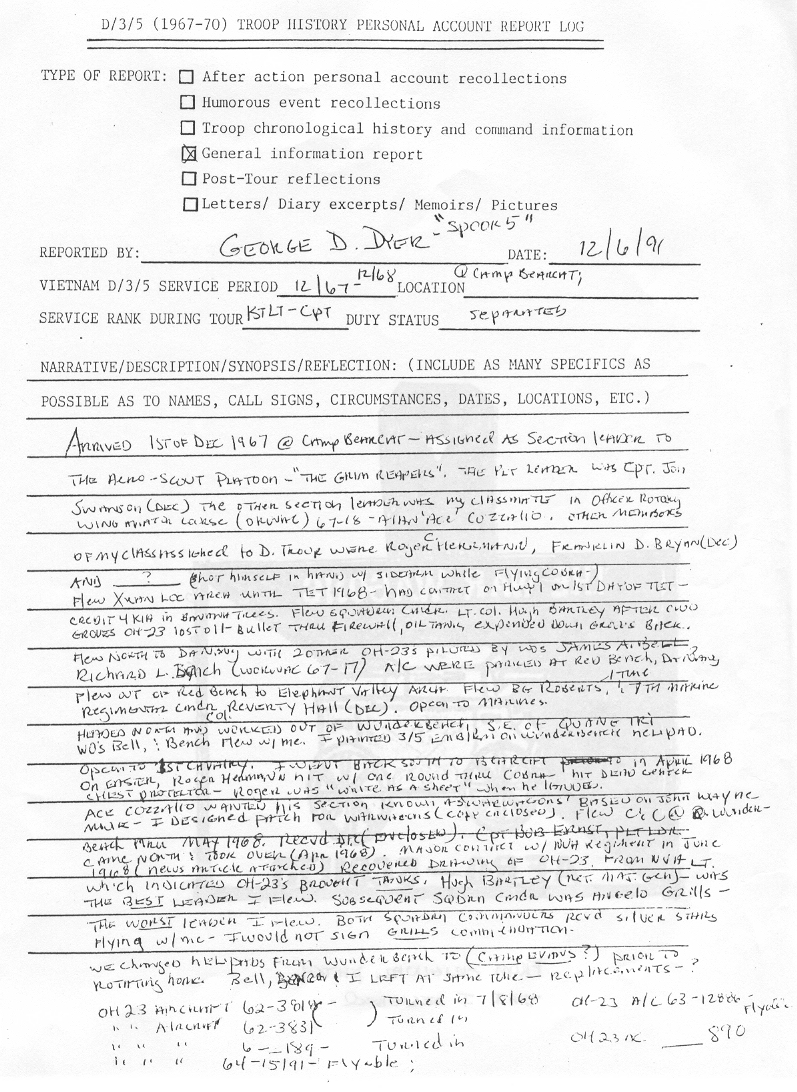 D/3/5 (1967-70) TROOP HISTORY PERSONAL ACCOUNT REPORT LOG
TYPE OF REPORT: After action personal account recollections
Humorous event recollections
Troop chronological history and command information
General information report
Post-Tour reflections
Letters/ Diary excerpts/ Memoirs/ Pictures
REPORTED BY: GEORGE D. DYER - "SPOOK 5" DATE: 12/6/91
VIETNAM D/3/5 SERVICE PERIOD 12/67-12/68 LOCATION @ CAMP BEARCAT;
SERVICE RANK DURING TOUR 1STLT-CPT DUTY STATUS SEPARATED
NARRATIVE/DESCRIPTION/SYNOPSIS/REFLECTION: (INCLUDE AS MANY SPECIFICS AS
POSSIBLE AS TO NAMES, CALL SIGNS, CIRCUMSTANCES, DATES, LOCATIONS, ETC.)
ARRIVED 1ST OF DEC 1967 @ CAMP BEARCAT - ASSIGNED AS SECTION LEADER TO
THE AERO-SCOUT PLATOON - "THE GRIM REAPERS". THE PLT LEADER WAS CPT. JON
SWANSON (DEC) THE OTHER SECTION LEADER WAS MY CLASSMATE IN OFFICER ROTARY
WING AVIATOR COURSE (ORWAC) 67-18 - ALAN 'ACE' COZZALIO. OTHER MEMBERS
OF MY CLASS ASSIGNED TO D. TROOP WERE ROGER C. HERRMANN, FRANKLIN D. BRYAN (DEC)
AND ? (SHOT HIMSELF IN HAND W/ SIDEARM WHILE FLYING COBRA-)
FLEW XUAN LOC AREA UNTIL TET 1968 - HAD CONTACT ON HWY 1 ON 1ST DAY OF TET -
CREDIT 4 KIA IN BANANA TREES. FLEW SQUADRON CMDR LT. COL. HUGH BARTLEY AFTER CWO
GROVES OH-23 LOST OIL - BULLET THRU FIREWALL, OIL TANK EXPENDED DOWN GROVES BACK.
FLEW NORTH TO DANANG WITH 2 OTHER OH-23'S PILOTED BY WOS JAMES A. BELL &
RICHARD L. BEACH (WORWAC 67-17) A/C WERE PARKED AT RED BEACH, DA NANG
FLEW OUT OF RED BEACH TO ELEPHANT VALLEY AREA FLEW BG ROBERTS, 1 TIME & 7TH MARINE
REGIMENTAL CMDR COL. REVERTY HALL (DEC). OPCON TO MARINES.
HEADED NORTH AND WORKED OUT OF WUNDERBEACH, S.E. OF QUANG TRI
WO'S BELL, & BEACH FLEW W/ ME. I PAINTED 3/5 EMBLEM ON WUNDERBEACH HELIPAD.
OPCON TO 1ST CAVALRY. I WENT BACK SOUTH TO BEARCAT IN APRIL 1968
ON EASTER, ROGER HERRMANN HIT W/ ONE ROUND THRU COBRA - HIT DEAD CENTER
CHEST PROTECTOR - ROGER WAS "WHITE AS A SHEET" WHEN HE LANDED.
ACE COZZALIO WANTED HIS SECTION KNOWN AS 'WARWAGONS' BASED ON JOHN WAYNE
MOVIE - I DESIGNED PATCH FOR WARWAGONS (COPY ENCLOSED). FLEW C&C @ WUNDER-
BEACH THRU MAY 1968. RECVD DFC (ENCLOSED). CPT BOB ERNST, PLT LDR
CAME NORTH & TOOK OVER (APR 1968). MAJOR CONTACT W/ NVA REGIMENT IN JUNE
1968 (NEWS ARTICLE ATTACHED) RECOVERED DRAWING OF OH-23 FROM NVA LT.
WHICH INDICATED OH-23'S BROUGHT TANKS. HUGH BARTLEY (RET. MAJ. GEN) - WAS
THE BEST LEADER I FLEW. SUBSEQUENT SQDRN CMDR WAS ANGELO GRILLS -
THE WORST LEADER I FLEW. BOTH SQUADRN COMMANDERS RCVD SILVER STARS
FLYING W/ ME - I WOULD NOT SIGN GRILLS COMMENDATION -
WE CHANGED HELIPADS FROM WUNDERBEACH TO (CAMP EVANS?) PRIOR TO
ROTATING HOME. BELL, BEACH & I LEFT AT SAME TIME - REPLACEMENTS - ?
OH 23 AIRCRAFT 62-3818 - ) TURNED IN 7/8/68 OH-23 A/C 63-12886 - FLYABLE
" " AIRCRAFT 62-3831 ) TURNED IN
" " " 6-__189 - TURNED IN OH 23 AC ___ 890
" " " 64-15191 - FLYABLE;